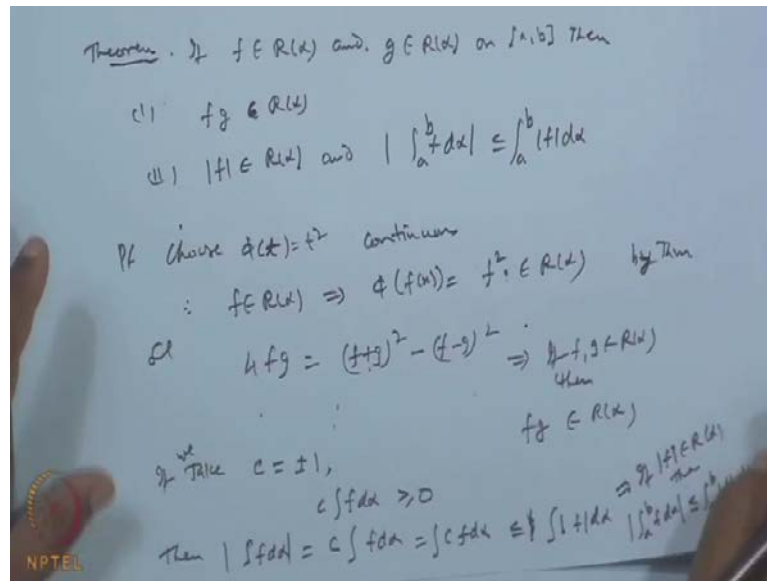 Theorem. If f ∈ R(α) and. g ∈ R(α) on [a,b] Then
(i) fg ∈ R(α)
(ii) |f| ∈ R(α) and | ∫_a^b f dα | ≤ ∫_a^b |f| dα
Pf Choose φ(t) = t² continuous
∴ f ∈ R(α) ⇒ φ(f(x)) = f² ∈ R(α) by Thm
4fg = (f+g)² − (f−g)² ⇒ If f, g ∈ R(α)
then
fg ∈ R(α)
If we Take c = ±1,
c∫fdα ≥ 0
Then |∫fdα| = c∫fdα = ∫cfdα ≤ ∫|f|dα ⇒ If |f| ∈ R(α)
then
|∫_a^b fdα| ≤ ∫_a^b
NPTEL